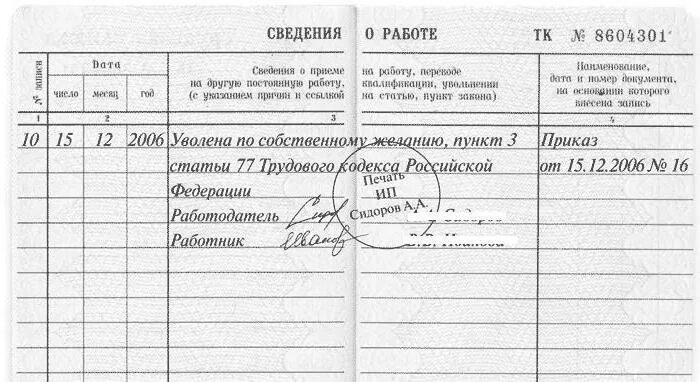 СВЕДЕНИЯ О РАБОТЕ ТК № 8604301
№ записи
Дата
число месяц год
Сведения о приеме на работу, переводе
на другую постоянную работу, квалификации, увольнении
(с указанием причин и ссылкой на статью, пункт закона)
Наименование,
дата и номер документа,
на основании которого
внесена запись
1 2 3 4
10 15 12 2006 Уволена по собственному желанию, пункт 3 Приказ
статьи 77 Трудового кодекса Российской от 15.12.2006 № 16
Федерации
Печать
ИП
Сидоров А.А.
Работодатель
Работник Иванов